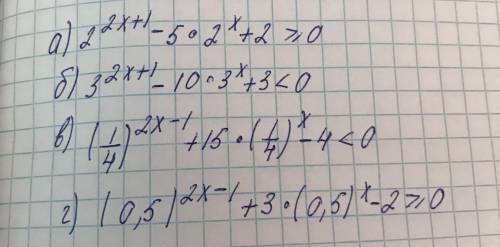 а) 2^(2x+1) - 5 · 2^x + 2 ≥ 0
б) 3^(2x+1) - 10 · 3^x + 3 < 0
в) (1/4)^(2x-1) + 15 · (1/4)^x - 4 < 0
г) (0,5)^(2x-1) + 3 · (0,5)^x - 2 ≥ 0